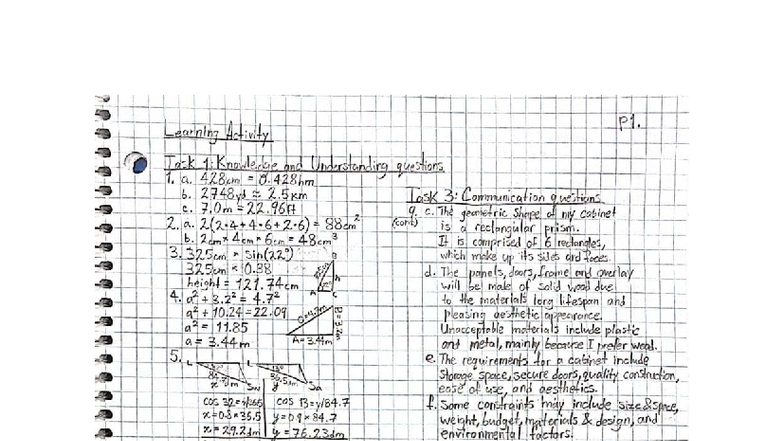 P1.
Learning Activity
Task 1: Knowledge and Understanding questions
1. a. 428cm = 0.428hm
b. 2748yd ≈ 2.5km
c. 7.0m = 22.96ft
2. a. 2(2·4+4·6+2·6) = 88cm²
b. 2cm × 4cm × 6cm = 48cm³
3. 325cm × sin(22°)
325cm × 0.38
height = 121.74cm
4. a² + 3.2² = 4.7²
a² + 10.24 = 22.09
a² = 11.85
a = 3.44m
C=4.7m
B=3.2m
A=3.44m
5.
x dm
y
cos 32=x/36.5
x=0.8×36.5
x=29.2dm
cos B=y/84.7
y=0.9×84.7
y=76.23dm
Task 3: Communication questions
9. c. The geometric shape of my cabinet
(cont)
is a rectangular prism.
It is comprised of 6 rectangles,
which make up its sides and faces.
d. The panels, doors, frame and overlay
will be made of solid wood due
to the materials long lifespan and
pleasing aesthetic appearance.
Unacceptable materials include plastic
and metal, mainly because I prefer wood.
e. The requirements for a cabinet include
storage space, secure doors, quality construction,
ease of use, and aesthetics.
f. Some constraints may include size & space,
weight, budget, materials & design, and
environmental factors.